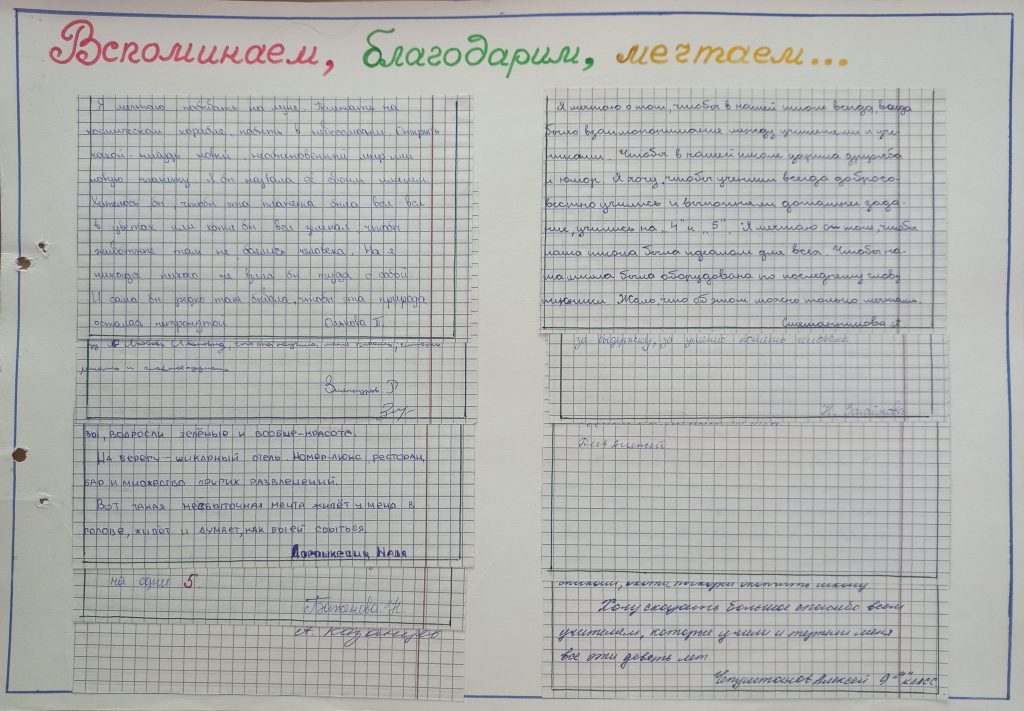 Вспоминаем, благодарим, мечтаем...
Я мечтаю побывать на луне. Полетать на
космическом корабле, побыть в невесомости. Открыть
какой-нибудь новый, необыкновенный мир или
новую планету. Я бы назвала её своим именем.
Хотелось бы, чтобы эта планета была вся вся
в цветах или хотя бы вся зелёная, чтобы
животные там не боялись человека. Но я
никогда никого не взяла бы туда с собой
И сама бы редко там бывала, чтобы эта природа
осталась нетронутой.
Т.
Любовь Ивановну, что она научила меня писать, считать
читать и
Р
зы, водросли зелёные и вообще-красота.
На берегу – шикарный отель. Номер-люкс, ресторан,
бар и множество других развлечений.
Вот такая несбыточная мечта живёт у меня в
голове, живёт и думает, как бы ей сбыться.
Надя
на одни 5.
Баженова. Н
А. Казанцев
Я мечтаю о том, чтобы в нашей школе всегда, всегда
было взаимопонимание между учителями и уче-
никами. Чтобы в нашей школе царила дружба
и юмор. Я хочу, чтобы ученики всегда добросо-
вестно учились и выполняли домашние зада-
ние, учились на „4" и „5". Я мечтаю о том, чтобы
наша школа была идеалом для всех. Чтобы на-
ша школа была оборудована по последнему слову
техники. Жаль, что об этом можно только мечтать.
за выдержку, за умение понять человека.
Н. Загайнова
Алексей
окончить школу.
Хочу сказать большое спасибо всем
учителям, которые учили и терпели меня
все эти девять лет.
Алексей 9 класс